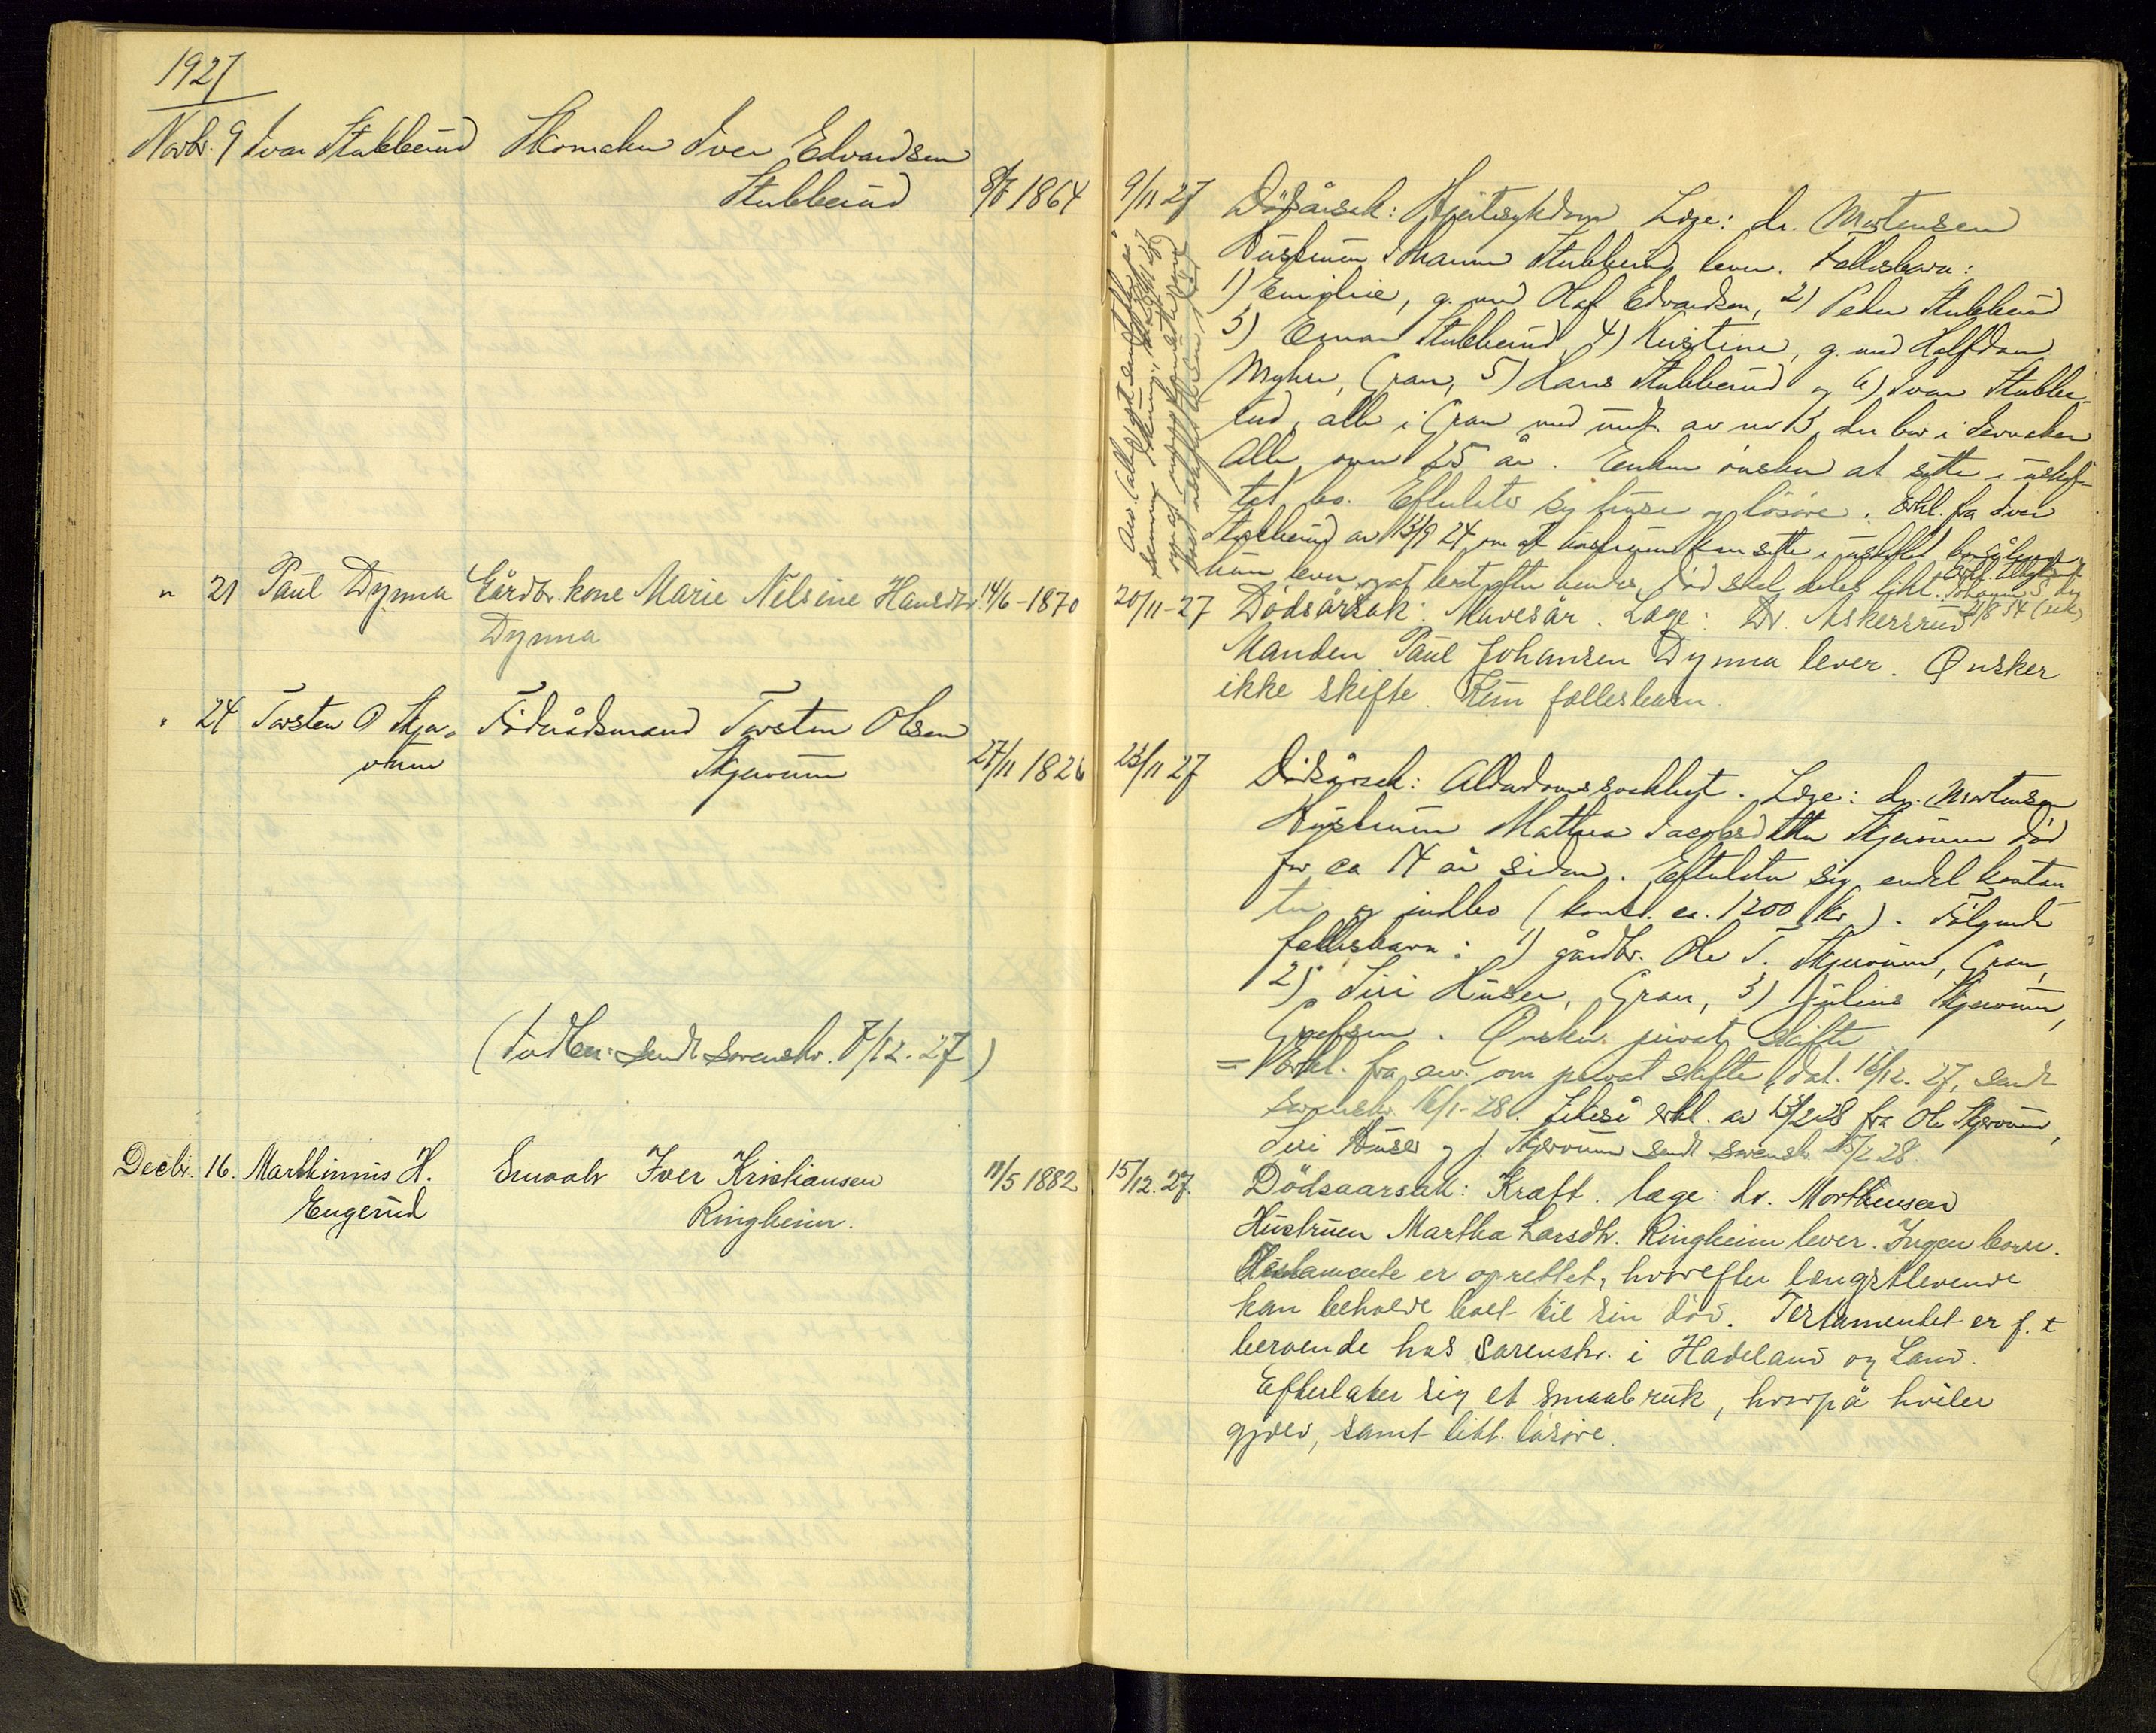 1927
Novbr. 9 Ivar Stubberud Skomaker Iver Edvardsen
Stubberud 8/7 1864
" 21 Paul Dynna Gårdbr. kone Marie Nilsine Hansdtr. 14/6-1870
Dynna
" 24 Torsten O Skjer- Föderådsmand Torsten Olsen
Skjervum 27/11 1826
(Indber. sendt sorenskr. 7/12-27)
Decbr. 16. Marthinius H. Smaabr Iver Kristiansen 11/5 1882
Engerud Ringheim.
9/11 27 Dödsårsak: Hjertesykdom Læge: dr. Mortensen
Hustruen Johanne Stubberud lever. Fellesbarn:
1) Emilie, g. med Olaf Edvardsen, 2) Peder Stubberud
3) Einar Stubberud, 4) Kristine, g. med Halfdan
Myhre, Gran, 5) Hans Stubberud og 6) Ivar Stubbe-
rud, alle i Gran med undt. av nr 3, der bor i
Alle over 25 år. Enken önsker at sitte i uskif-
tet bo. Efterlater sig huse og lösöre. Erkl. fra Iver
Stubberud av 13/9 24 om at hustruen kan sitte i uskiftet bo så lenge
hun lever og at boet efter hendes död skal deles likt.
20/11-27 Dödsårsak: Mavesår. Læge: Dr. Askersrud
Manden Paul Johansen Dynna lever. Ønsker
ikke skifte. Kun fællesbarn.
23/11 27 Dödsårsak: Alderdomssvakhet. Læge: dr. Mortensen
Hustruen Mathea Jacobsdatter Skjervum död
for ca 14 år siden. Efterlater sig endel kontan
ter og indbo (kont. ca. 1200 kr). Fölgende
fellesbarn: 1) gårdbr. Ole T. Skjervum, Gran,
2) Siri Huser, Gran, 3) Julius Skjervum,
Grefsen. Ønsker privat skifte
= Erkl. fra arv. om privat skifte, dat. 16/12-27, sendt
sorenskr. 16/1-28. Likeså erkl. av 13/2 28 fra Ole Skjervum,
Siri Huser og J. Skjervum sendt sorenskr. 15/2 28.
15/12.27. Dödsaarsak: Kræft. læge: dr. Morthensen
Hustruen Martha Larsdtr. Ringheim lever. Ingen barn.
Testamente er oprettet, hvorefter længstlevende
kan beholde boet til sin död. Testamentet er f. t
beroende hos sorenskr. i Hadeland og Land.
Efterlater sig et smaabruk, hvorpå hviler
gjæld, samt litt lösöre.